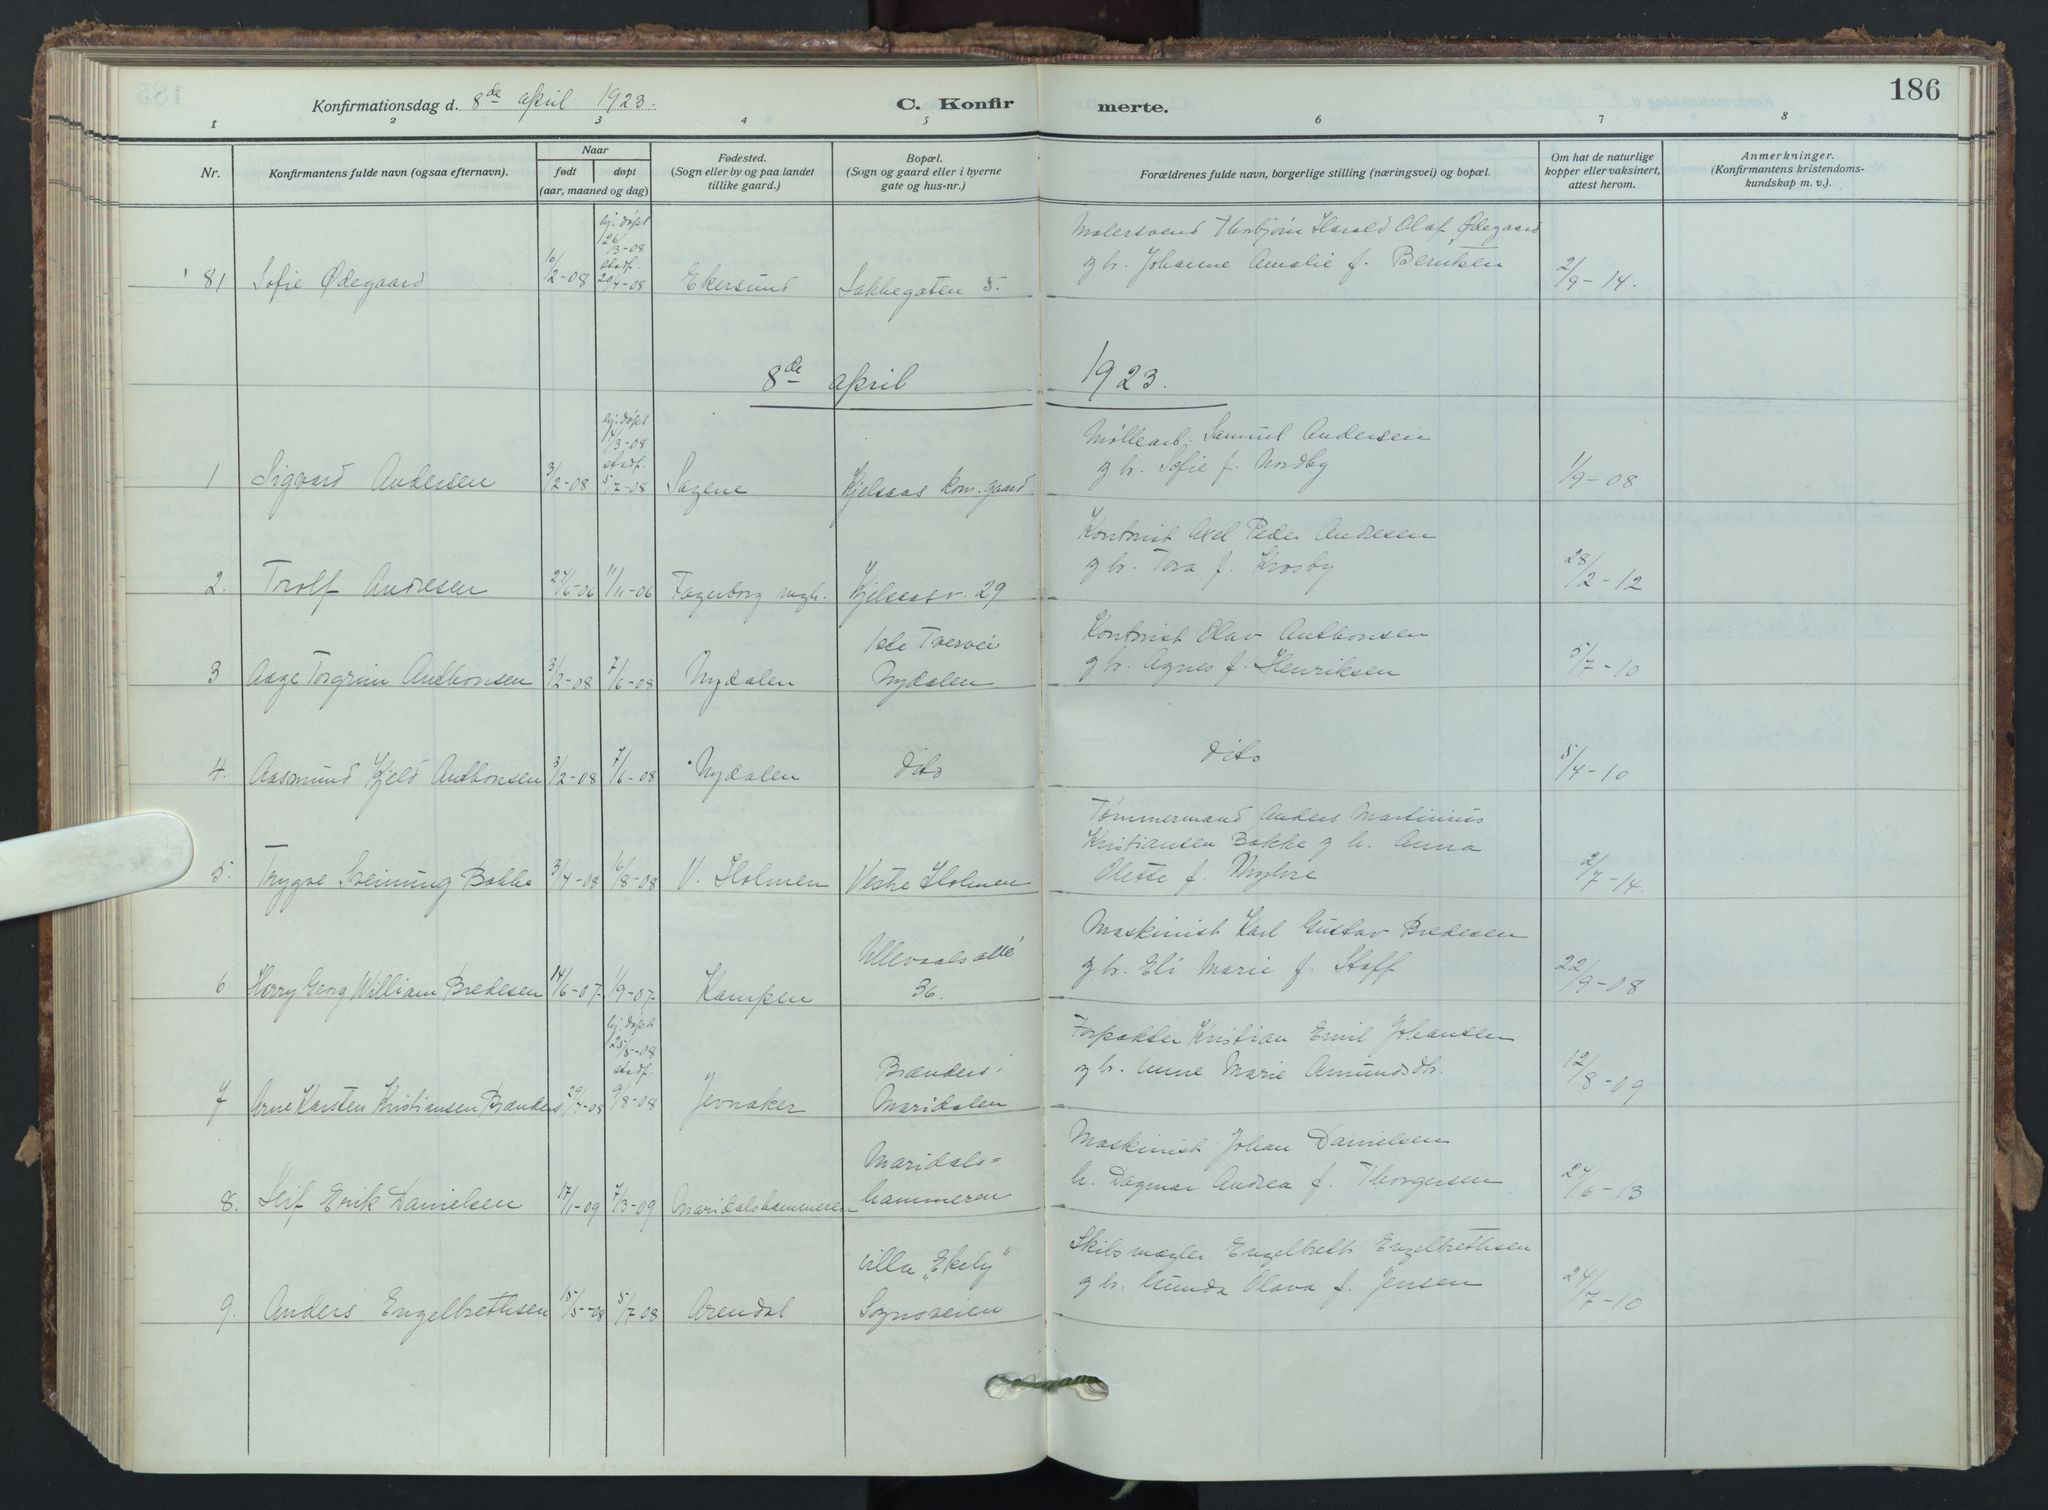 186
Konfirmationsdag d. 8de april 1923.
C. Konfirmerte.
1 2 3 4 5 6 7 8
Nr.
Konfirmantens fulde navn (ogsaa efternavn).
Naar
født døpt
(aar, maaned og dag)
Fødested.
(Sogn eller by og paa landet
tillike gaard.)
Bopæl.
(Sogn og gaard eller i byerne
gate og hus-nr.)
Forældrenes fulde navn, borgerlige stilling (næringsvei) og bopæl.
Om hat de naturlige
kopper eller vaksinert,
attest herom.
Anmerkninger.
(Konfirmantens kristendoms-
kundskap m. v.).
hj. døpt
26/3-08
stadf.
Malersvend Thorbjørn Harald Olaf Ødegaard
g hr. Johanne Amalie f. Berntsen
81 Sofie Ødegaard 16/2-08 20/4-08 Ekersund Lakkegaten 5. 2/9-14.
8de april 1923.
hj. døpt
stadf.
Møllearb. Samuel Andersen
g hr. Sofie f. Nordby
1 Sigvard Andersen 3/2-08 5/7-08 Sagene Kjelsaas kom. gaard 1/9-08
Kontorist Axel Peder Andresen
g hr. Tora f. Krosby
2. Trolf Andresen 27/6-06 11/11-06 Fagerborg mgh. Kjelsaasv. 29 28/2-12
1ste Tvervei
Kontorist Olav Anthonsen
g hr. Agnes f. Henriksen
3 Aage Torgrim Anthonsen 3/2-08 7/6-08 Nydalen Nydalen 5/7-10
4. Aasmund Kjeld Anthonsen 3/2-08 7/6-08 Nydalen dito dito 5/4-10
Tømmermand Anders Martinius
Kristiansen Bakke g h. Anna
Olette f. Myhre
5. Trygve Steinung Bakke 3/4-08 16/8-08 V. Holmen Vestre Holmen 2/7-14.
Ullevaals allé
Maskinist Karl Gustav Bredesen
g hr. Eli Marie f. Staff
6 Harry Georg William Bredesen 14/6-07 1/9-07 Kampen 36. 22/9-08
hj. døpt
25/5-08
stadf.
Brænders i
Forpakter Kristian Emil Johansen
g hr. Anne Marie Amundsdtr.
7 Arne Karsten Kristiansen Brænders 29/4-08 9/8-08 Jevnaker Maridalen 12/8-09
Maridals=
hammeren
Maskinist Johan Danielsen
h. Dagmar Andrea f. Thorgersen
8. Leif Erik Danielsen 17/1-09 7/3-09 Maridalshammeren 24/6-13
villa „Ekely"
Skibsmægler Engelbreth Engelbrethsen
g hr. Gunda Olava f. Jensen
9. Anders Engelbrethsen 15/5-08 5/7-08 Arendal Sognsveien 24/7-10